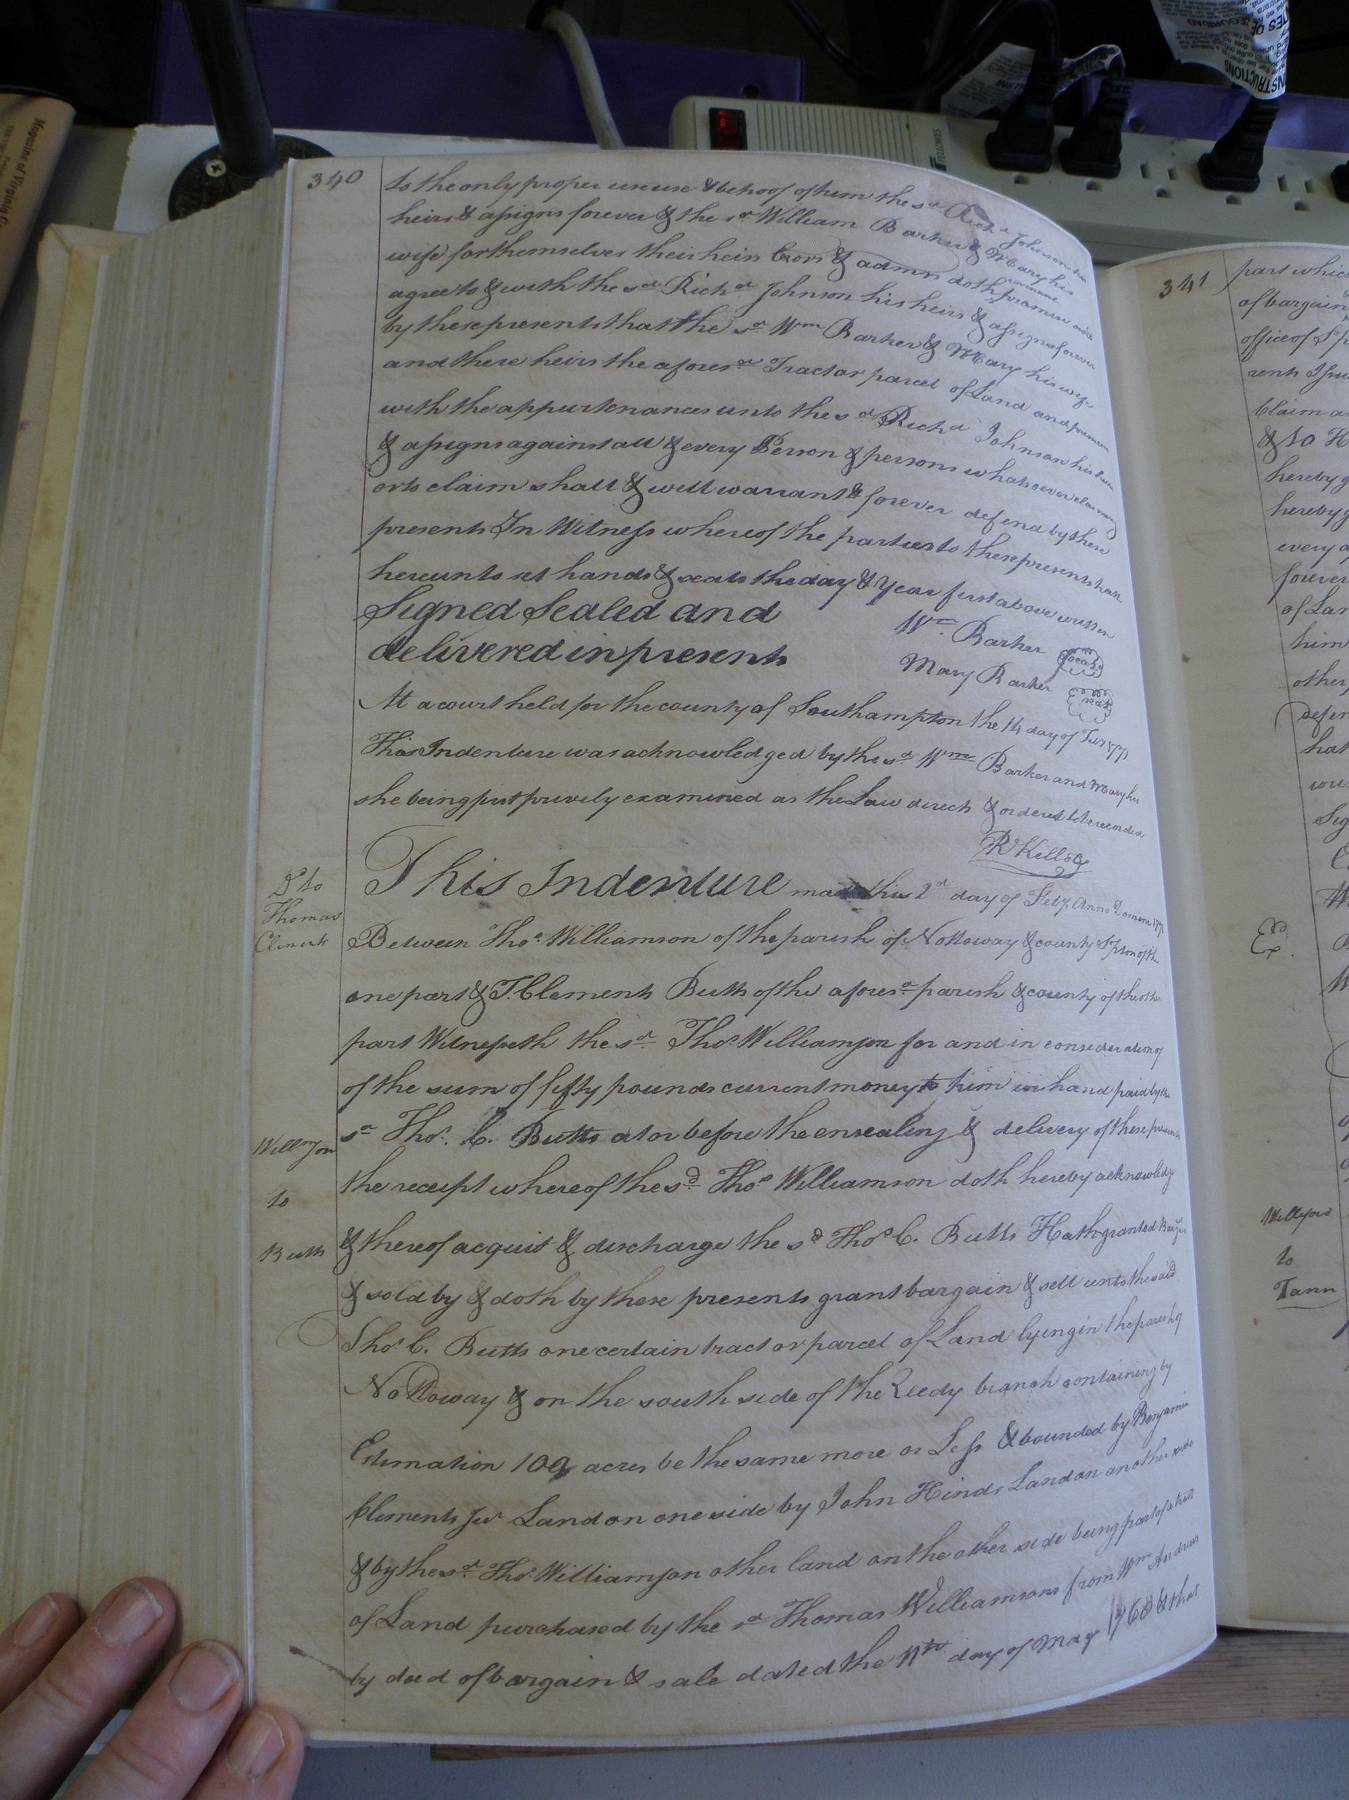 340
to the only proper use use & behoof of him the sd Richd Johnson his
heirs & assigns forever & the sd William Barker & Mary his
wife for themselves their heirs Exors & admrs doth promise and
agree to & with the sd Richd Johnson his heirs & assigns forever
by these presents that the sd Wm Barker & Mary his wife
and there heirs the aforesd Tract or parcel of Land and premises
with the appurtenances unto the sd Richd Johnson his heirs
& assigns against all & every Person & persons whatsoever claiming
or to claim shall & will warrant & forever defend by these
presents In Witness whereof the parties to these presents have
hereunto set hands & seals the day & Year first above written
Signed Sealed and
delivered in presents
Wm. Barker seal
Mary Barker seal
At a court held for the county of Southampton the 14 day of
This Indenture was acknowledged by the sd Wm Barker and Mary his
she being first privily examined as the Law directs & ordered to be recorded
R Kello
Thomas
This Indenture made this 2d day of Anno Domini
Between Thos. Williamson of the parish of Nottoway & county of the
one part & T. Clements Butts of the aforesd parish & county of the other
part Witnesseth the sd Thos. Williamson for and in consideration of
of the sum of fifty pounds current money to him in hand paid by the
sd Thos. C. Butts at or before the ensealing & delivery of these presents
the receipt whereof the sd Thos Williamson doth hereby acknowledg
Willmson
to
Butts
& thereof acquit & discharge the sd Thos C. Butts Hath granted
& sold by & doth by these presents grant bargain & sell unto the said
Thos C. Butts one certain tract or parcel of Land lying in the parish of
Nottoway & on the south side of the Reedy branch containing by
Estimation 100 acres be the same more or Less & bounded by Benjamin
Clements Junr Land on one side by John Hinds Land on another side
& by the sd Thos Williamson other land on the other side being part of a tract
of Land purchased by the sd Thomas Williamson from Wm Andrews
by deed of bargain & sale dated the day of May 1768 & that
341
part which
of bargain
office of
rents
claim
& to H
hereby g
hereby g
every
forever
of Lan
him
other
defen
hat
Sig
Ex.
Willyms
to
Tann
Magazine of Virginia